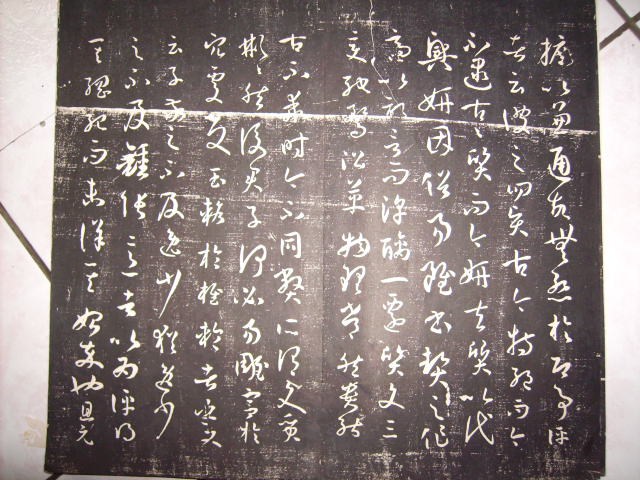 擬以兼通故無慙於即事評
者云彼之四賢古今特絕而今
不逮古古質而今妍夫質以代
興妍因俗易雖書契之作
適以記言而淳醨一遷質文三
變馳騖沿革物理常然貴能
古不乖時今不同弊所謂文質
彬彬然後君子何必易雕宮於
穴處反玉輅於椎輪者乎又
云子敬之不及逸少猶逸少
之不及鍾張意者以為評得
其綱紀而未詳其始卒也且元